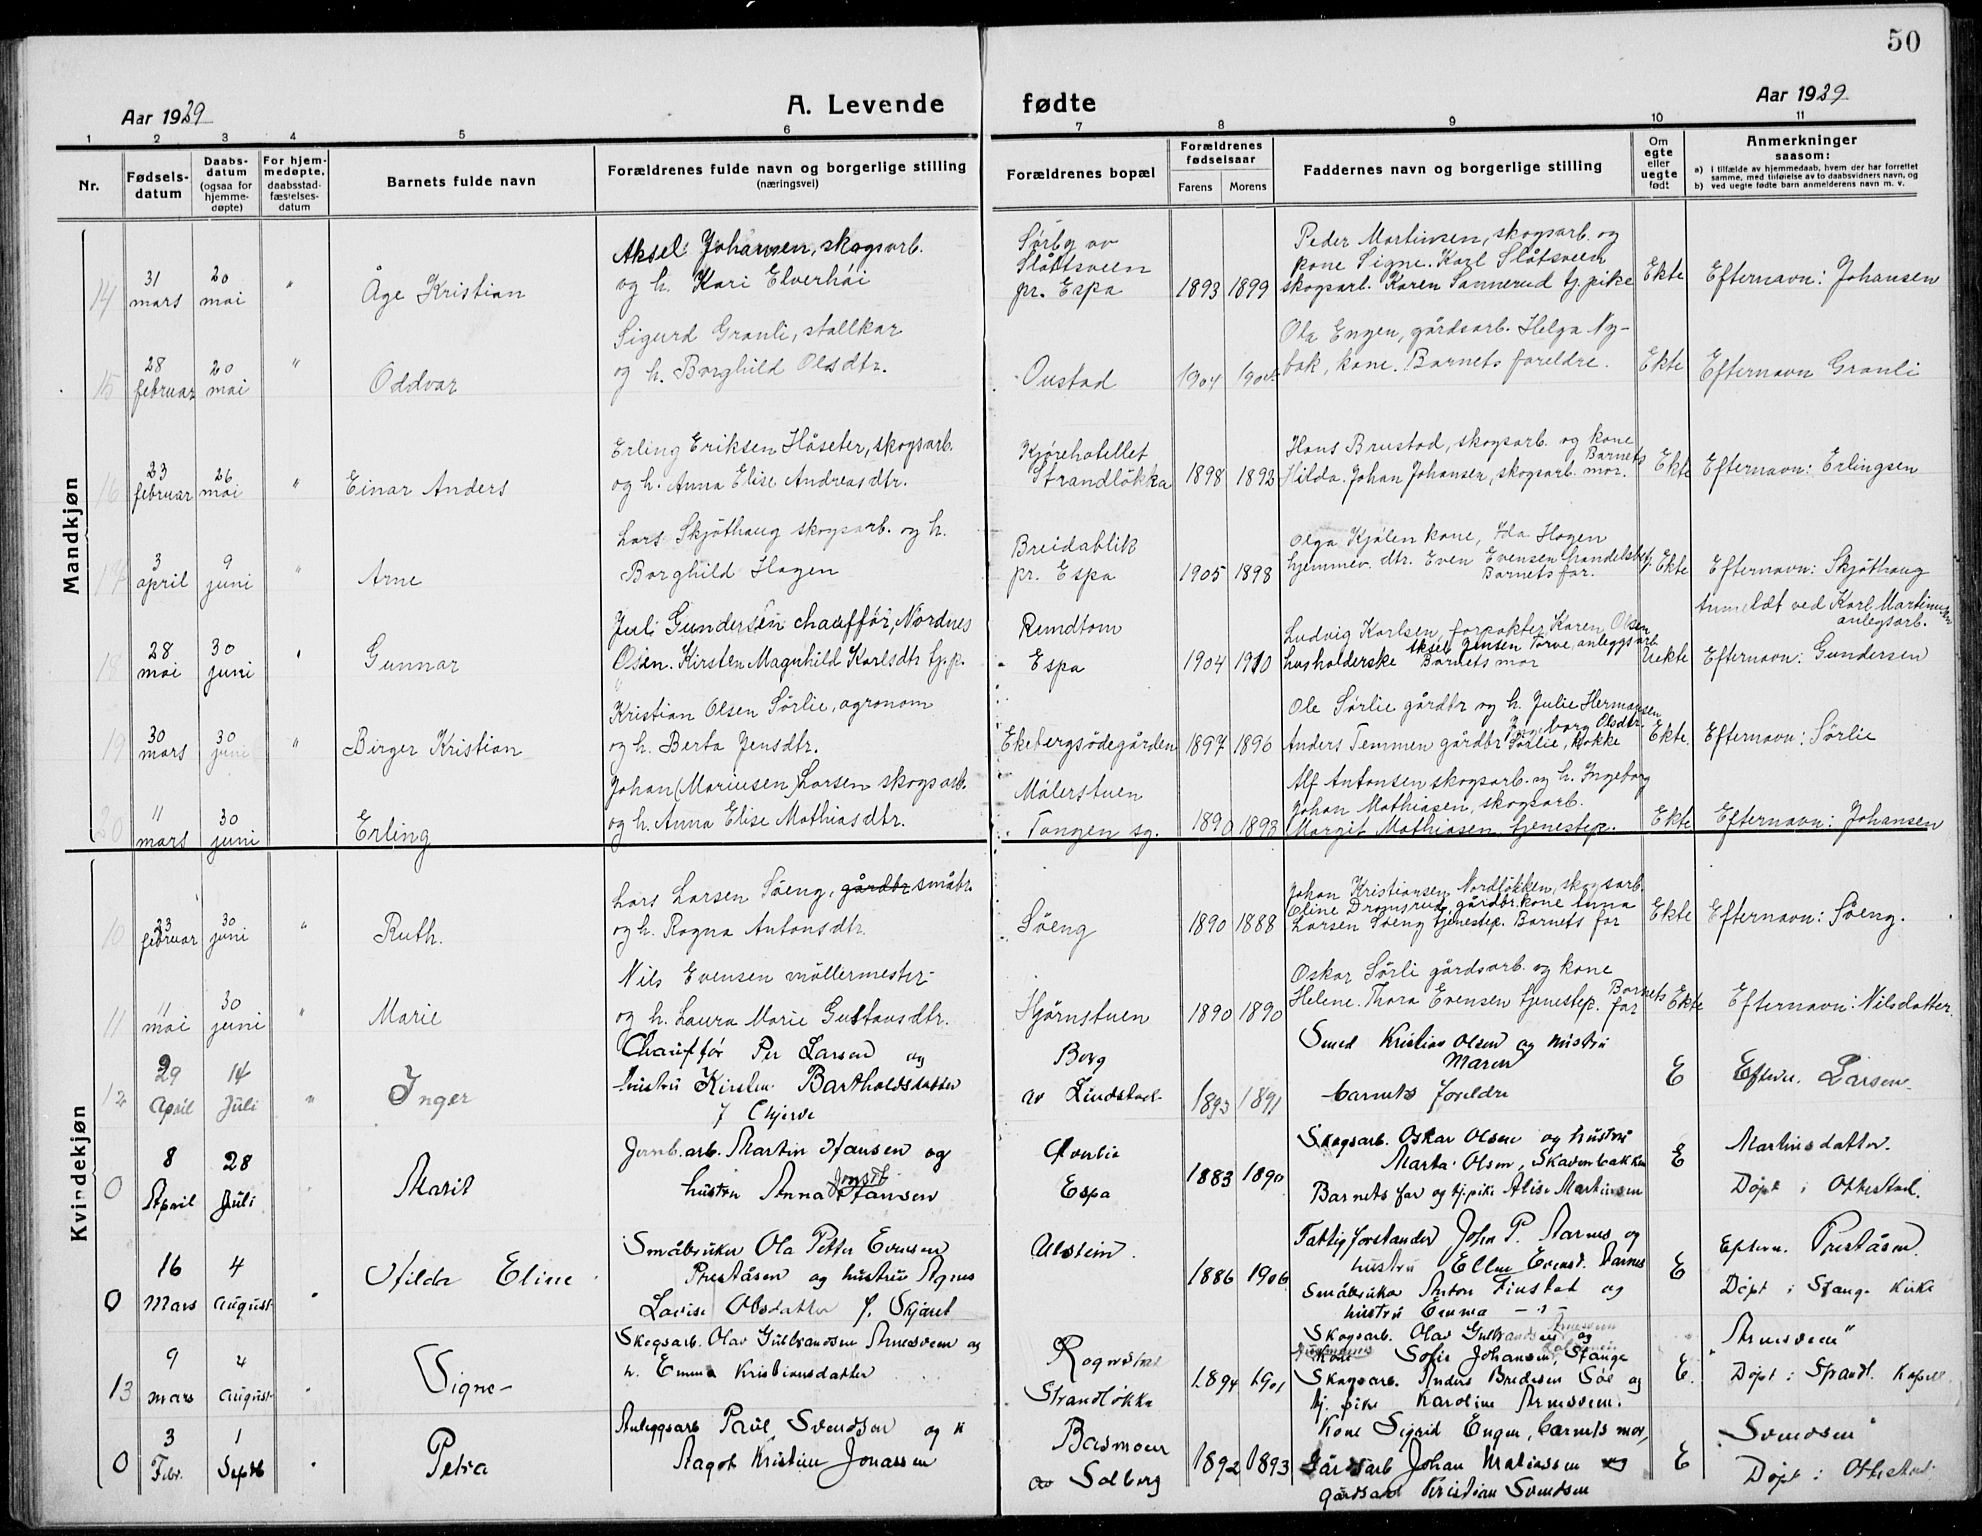 50
Aar 1929
A. Levende fødte
Aar 1929
1 2 3 4 5 6 7 8 9 10 11
Nr.
Fødsels-
datum
Daabs-
datum
(ogsaa for
hjemme-
døpte)
For hjem-
medøpte,
daabsstad-
fæstelses-
datum
Barnets fulde navn
Forældrenes fulde navn og borgerlige stilling
(næringsvei)
Forældrenes bopæl
Forældrenes
fødselsaar
Farens Morens
Faddernes navn og borgerlige stilling
Om
egte
eller
uegte
født
Anmerkninger
saasom:
a) i tilfælde av hjemmedaab, hvem der har forrettet
samme, med tilføielse av to daabsvidners navn, og
b) ved uegte fødte barn anmelderens navn m. v.
Mandkjøn
14
31
mars
20
mai
"
Åge Kristian
Aksel Johansen, skogsarb.
og h. Kari Elverhöi
Sørby av
Slåttsveen
pr. Espa
1893 1899
Peder Martinsen, skogsarb. og
kone Signe. Karl Slåtsveen
skogsarb. Karen Sannerud tj.pike
Ekte
Efternavn: Johansen
15
28
februar
20
mai
"
Oddvar
Sigurd Granli, stallkar
og h. Borghild Olsdtr.
Oustad
1904
Ola Engen, gårdsarb. Helga Ny-
bak, kone. Barnets foreldre.
Ekte
Efternavn Granli
16
23
februar
26
mai
"
Einar Anders
Erling Eriksen Håseter, skogsarb.
og h. Anna Elise Andreasdtr.
Kjørehotellet
Strandløkka
1898 1892
Hans Brustad, skogsarb. og kone
Hilda. Johan Johansen, skogsarb. Barnets mor.
Ekte
Efternavn: Erlingsen
17
3
april
9
juni
"
Arne
Lars Skjöthaug skogsarb. og h.
Borghild Hagen
Breidablik
pr. Espa
1905 1898
Olga Kjølen kone, Ida Hagen
hjemmev. dtr. Even Evensen handelsbetj.
Barnets far.
Ekte
Efternavn: Skjöthaug
18
28
mai
30
juni
"
Gunnar
Juli Gundersen chauffør, Nordnes
Olsen. Kirsten Magnhild Karlsdtr tj.p.
Rundtom
Espa
1904 1910
Ludvig Karlsen, forpakter Karen Olsen
husholderske Aksel Jensen Torve, anleggsarb.
Barnets mor
Uekte
Anmeldt ved Karl Martinusen
anlegsarb.
Efternavn: Gundersen
19
30
mars
30
juni
"
Birger Kristian
Kristian Olsen Sørlie, agronom
og h. Berta Jensdtr.
Ekebergsødegården
1897 1896
Ole Sørlie gårdbr og h. Julie Hermansen
Anders Temmen gårdbr Ingeborg Olsdtr.
Sørlie, kokke
Ekte.
Efternavn: Sørlie
20
11
mars
30
juni
Erling
Johan (Mariusen) Larsen skogsarb.
og h. Anna Elise Mathiasdtr.
Målerstuen
Tangen sg.
1890 1893
Alf Antonsen skogsarb. og h. Ingeborg
Johan Mathiasen, skogsarb.
Margit Mathiasen tjenestep.
Ekte
Efternavn: Johansen
Kvindekjøn
10
23
februar
30
juni
"
Ruth.
Lars Larsen Söeng, gårdbr småbr.
og h. Ragna Antonsdtr.
Söeng
1890 1888
Johan Kristiansen Nordløkken, skogsarb.
Eline Dramsrud, gårdbr.kone Anna
Larsen Söeng tjenestep. Barnets far
Ekte
Efternavn: Söeng.
11
11
mai
30
juni
"
Marie
Nils Evensen möllermester
og h. Laura Marie Gustavsdtr.
Hjørnstuen
1890 1890
Oskar Sørli gårdsarb. og kone
Helene. Thora Evensen tjenestep. Barnets
far
Ekte
Efternavn: Nilsdatter.
12
29
April
14
Juli
"
Inger
Chauffør Per Larsen og
hustru Kirsten Bartholdsdatter
f Gjerve
Borg
av Lindstad
1893 1891
Smed Kristian Olsen og hustru
Maren
barnets foreldre
E
Eftern. Larsen
0
8
April
28
Juli
Marit
Jernb.arb. Martin Hansen og
hustru Anna Jonsdt. Hansen
Øverlie
Espa
1883 1890
Skogsarb. Oskar Olsen og hustru
Marta Olsen, Skavenbakken
Barnets far og tj.pike Alise Martinsen
E
Martinsdatter.
Døpt i Ottestad.
0
16
Mars
4
August
"
Hilda Eline
Småbruker Ola Petter Evensen
Preståsen og hustru Agnes
Lovise Olsdatter f. Skjæret
Ulstein.
1886 1906
Fattigforstander John P. Aarnes og
hustru Ellen Evensd. Aarnes
Småbruker Anton Finstad og
hustru Emma — " —
E
Eftern. Preståsen.
Døpt i Stange Kirke
13
9
mars
4
august
"
Signe
Skogsarb. Olav Gulbrandsen Arnesveen og
h. Emma Kristiansdatter
Rognstad
Strandløkka
1894 1901
Skogsarb. Olav Gulbrandsen og
kone Sofie Johansen, Stange
Skogsarb. Anders Bredesen Söe og
tj. pike Karoline Arnesveen.
E.
"Arnesveen"
Døpt i Strandl. Kapell.
0
3
Febr.
1
Septb
"
Petra
Anleggsarb Paul Svendsen og h
Aagot Kristine Jonassen
Basmoen
av Solberg
1892 1893
Kone Sigrid Engen, barnets mor,
Gårdsarb Johan Matiassen og
gårdsarb Kristian Svendsen
E
Svendsen
Døpt i Ottestad.